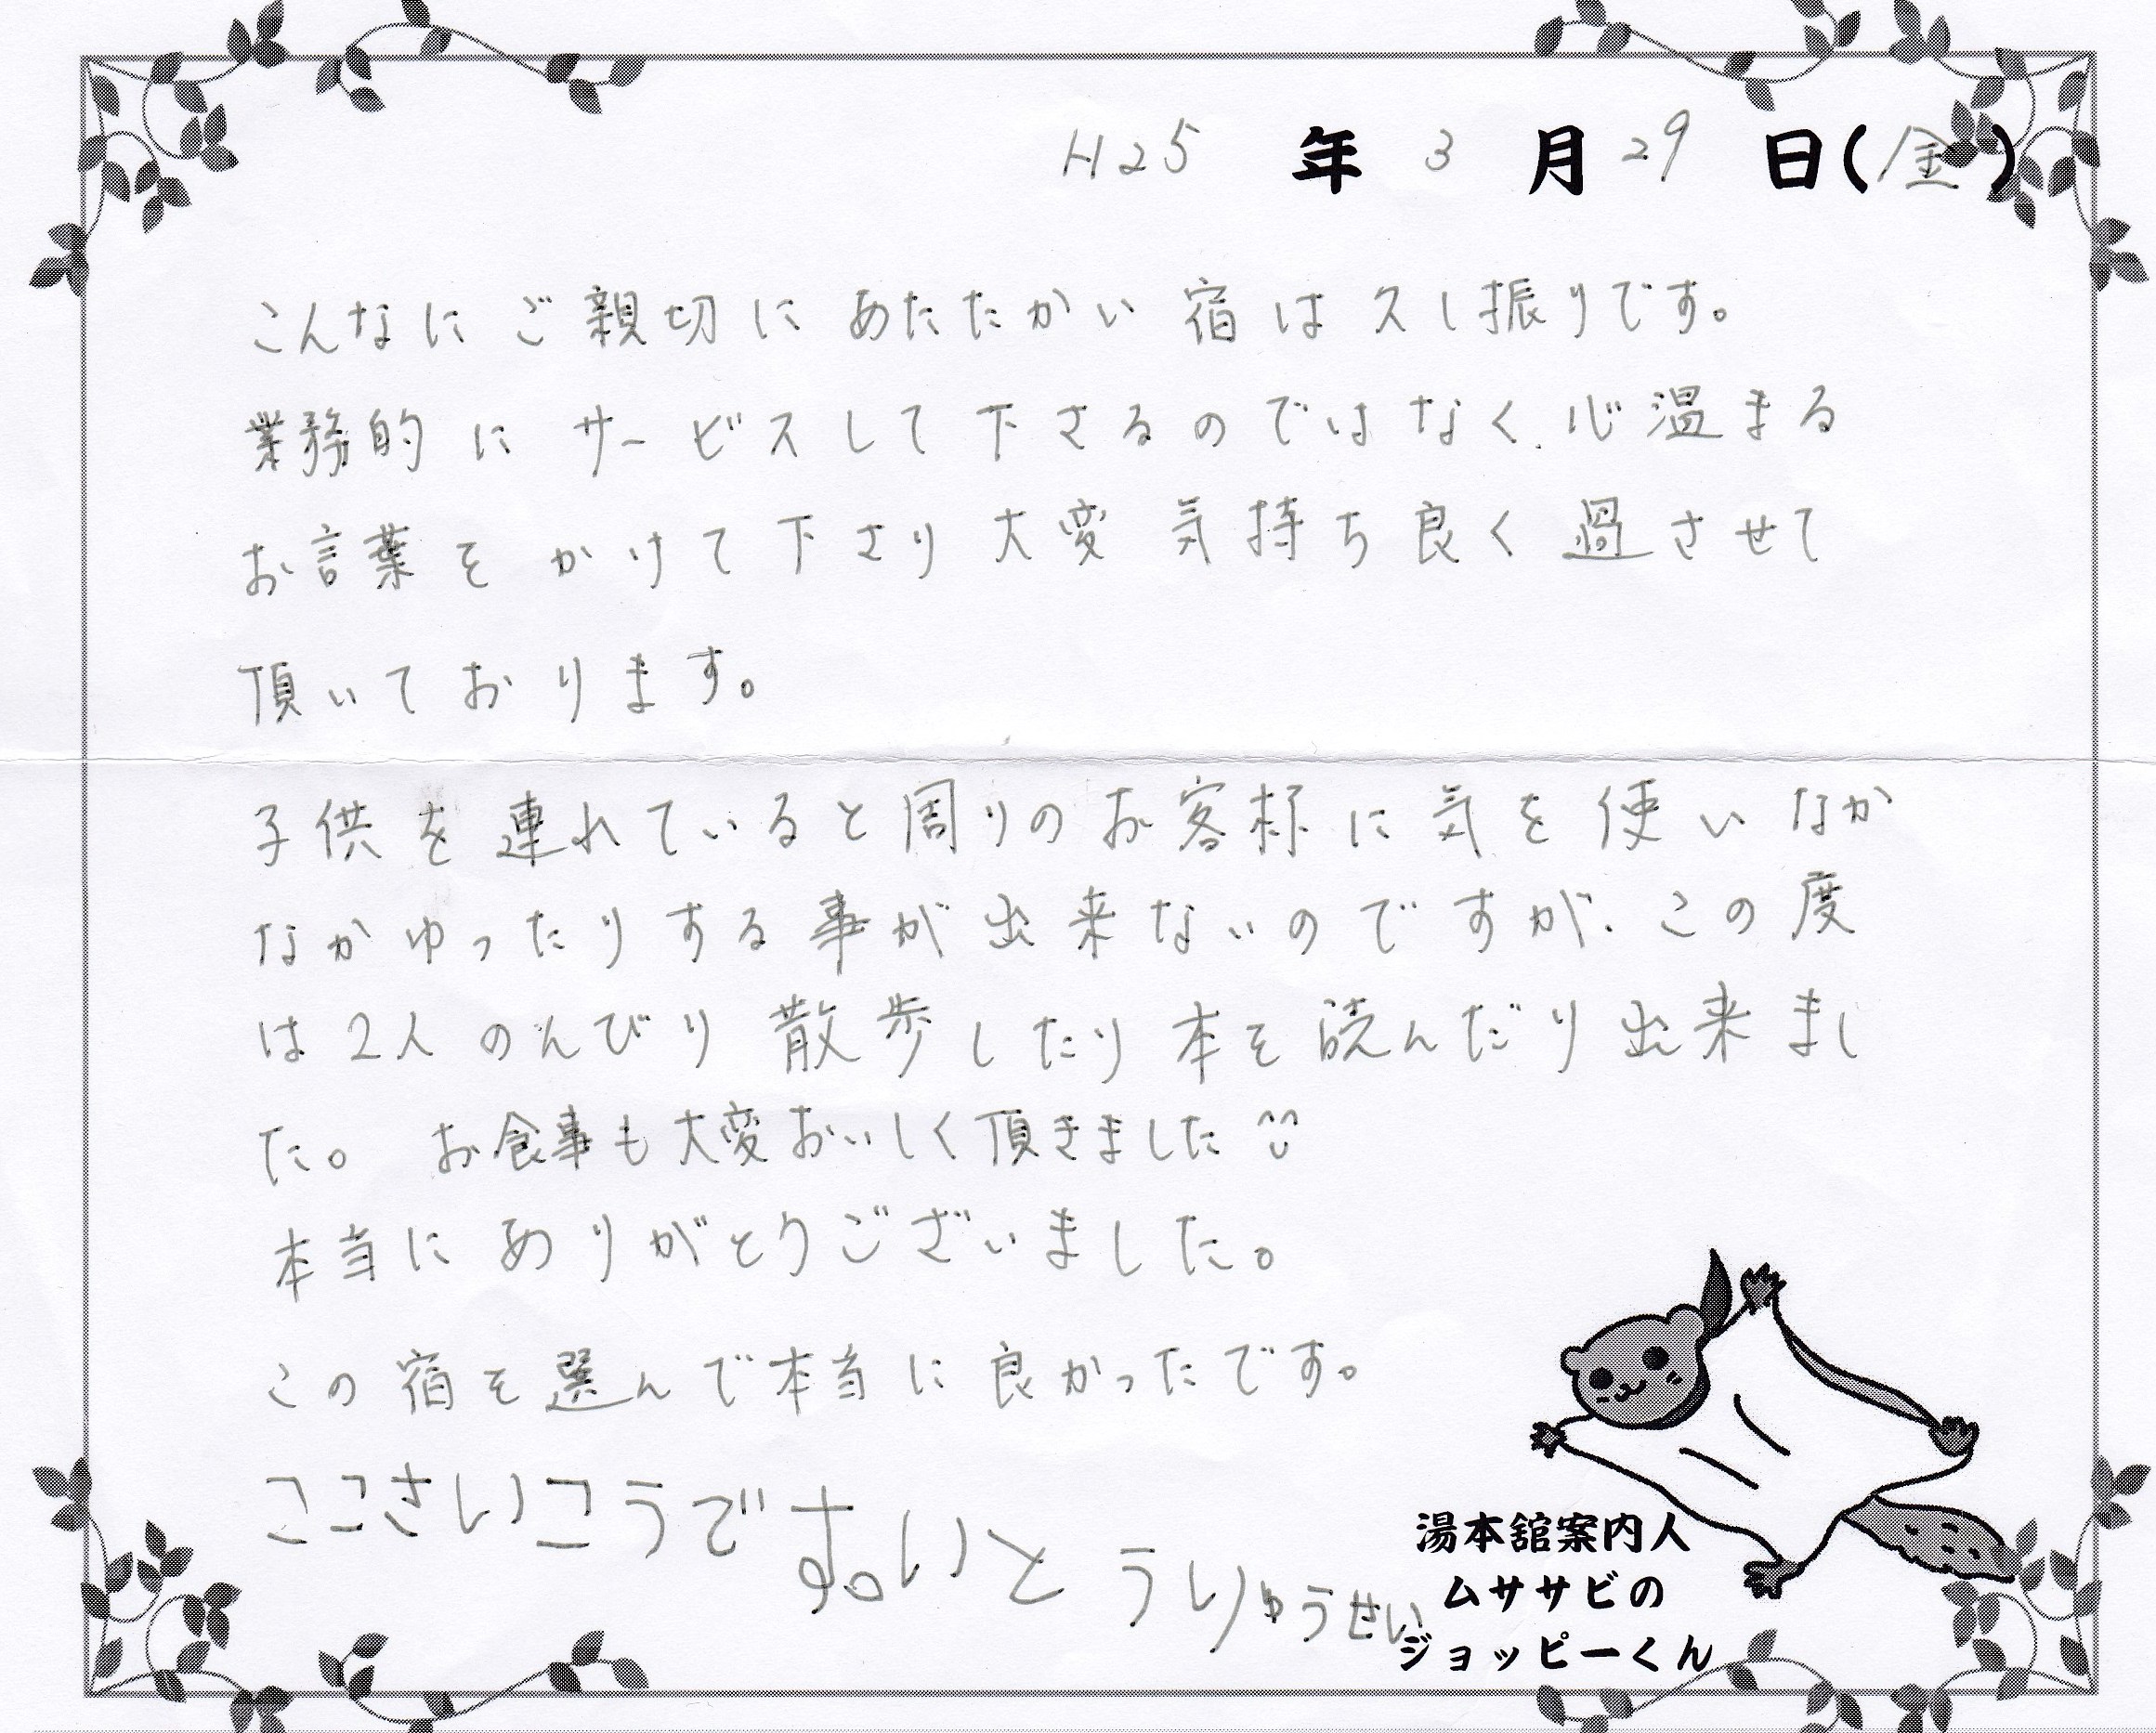 H25 年 3 月 29 日(金)
こんなにご親切にあたたかい宿は久し振りです。
業務的にサービスして下さるのではなく、心温まる
お言葉をかけて下さり大変気持ち良く過させて
頂いております。
子供を連れていると周りのお客様に気を使いなか
なかゆったりする事が出来ないのですが、この度
は2人のんびり散歩したり本を読んだり出来まし
た。お食事も大変おいしく頂きました
本当にありがとうございました。
この宿を選んで本当に良かったです。
ここさいこうです。いとうりゅうせい
湯本舘案内人
ムササビの
ジョッピーくん